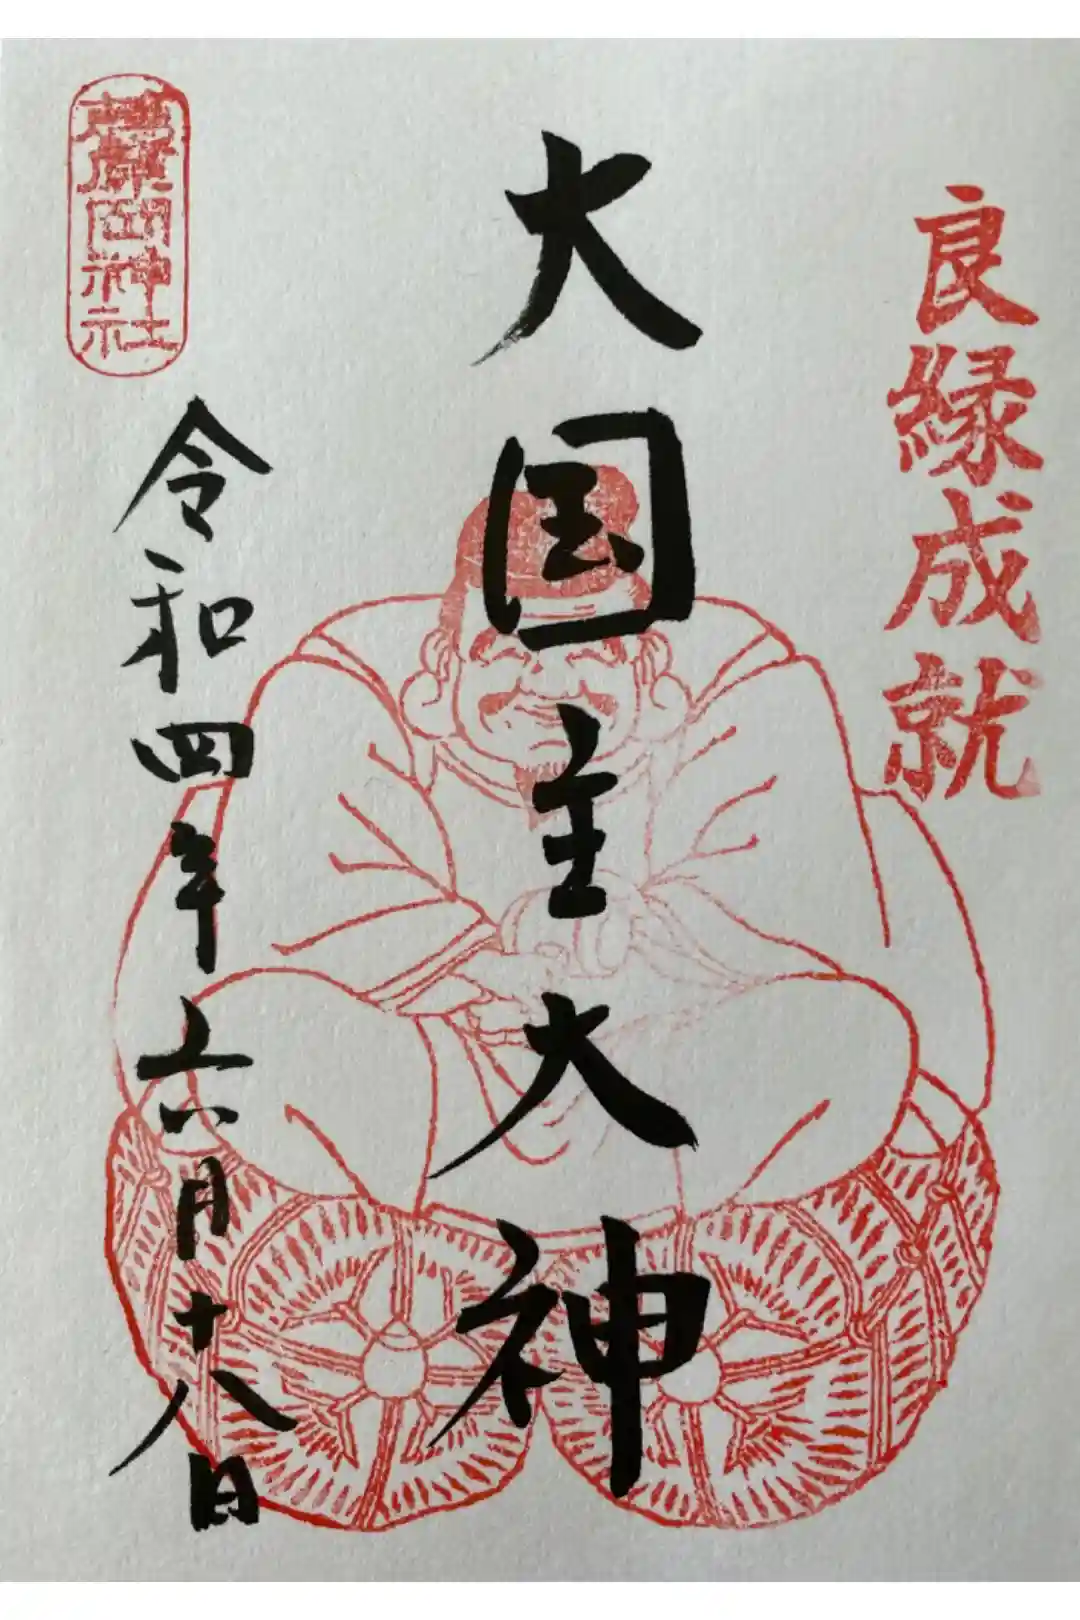 良縁成就
大国主大神
葛原岡神社
令和四年六月十八日